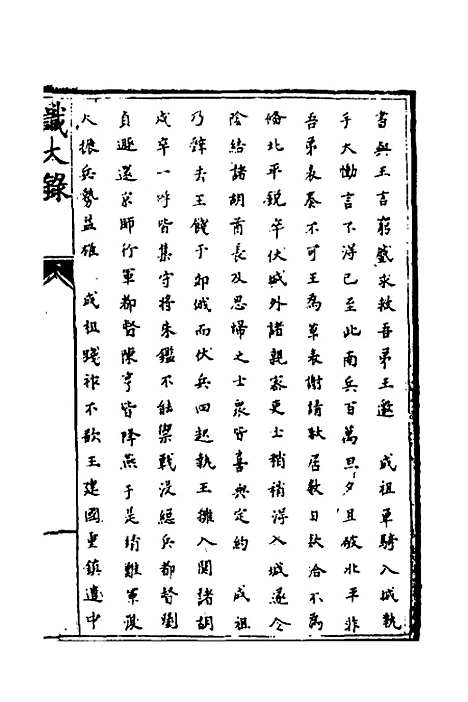 書與王言窮蹙求救吾弟王邀　成祖單騎入城執
手大慟言不得已至此南兵百萬旦夕且破北平非
吾弟表奏不可王為草表謝請赦居數日欵洽不為
備北平銳卒伏城外諸親密吏士稍稍得入城遂令
陰結諸胡酋長及思歸之士衆皆喜與定約　成祖
乃辭去王餞于郊城而伏兵四起執王擁入関諸胡
戍卒一呼皆集守將朱鑑不能禦戰没總兵都督劉
貞遯還京師行軍都督陳亨皆降燕于是靖難軍復
大振兵勢益雄　成祖踐祚不欲王建國重鎮遣中
識大錄